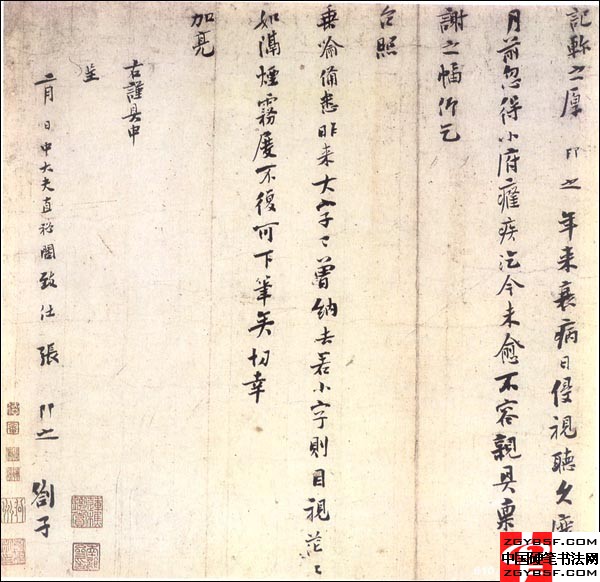 記軫之厚 即之 年来衰病日侵視聽久廢
月前忽得小府癃疾迄今未愈不容親具稟
謝之幅仰乞
台照
垂喻備悉昨来大字已曾納去若小字則目視茫〻
如隔煙霧不復可下筆矣切幸
加亮
右謹具申
呈
二月 日中大夫直秘閣致仕張 即之 劄子
ZGYBSF.COM
中国硬笔书法网
ZGYBSF.COM